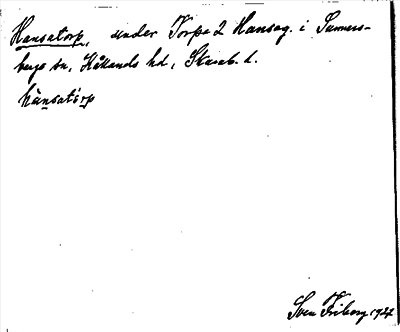 Hansatorp, under Torpa 2 Hansag. i Sunners-
bergs sn, Kållands hd, Skarab. l.
hänsatórp
Sven Friberg 1927